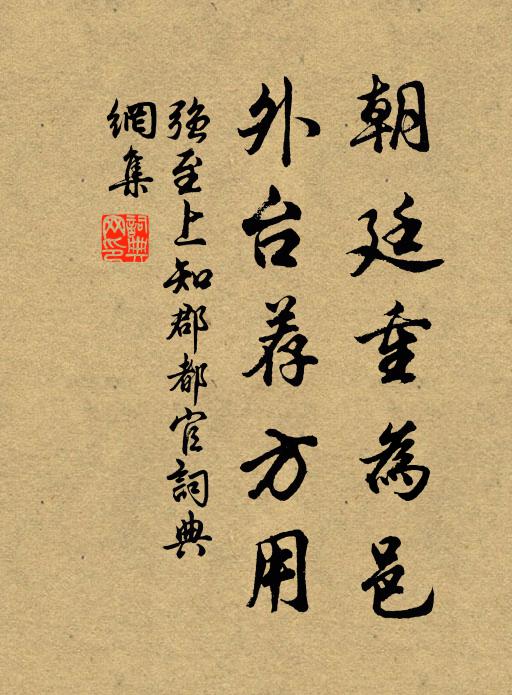 朝廷重為邑
外台荐方用
強至上知郡都官詞典
網集
詞典
网印